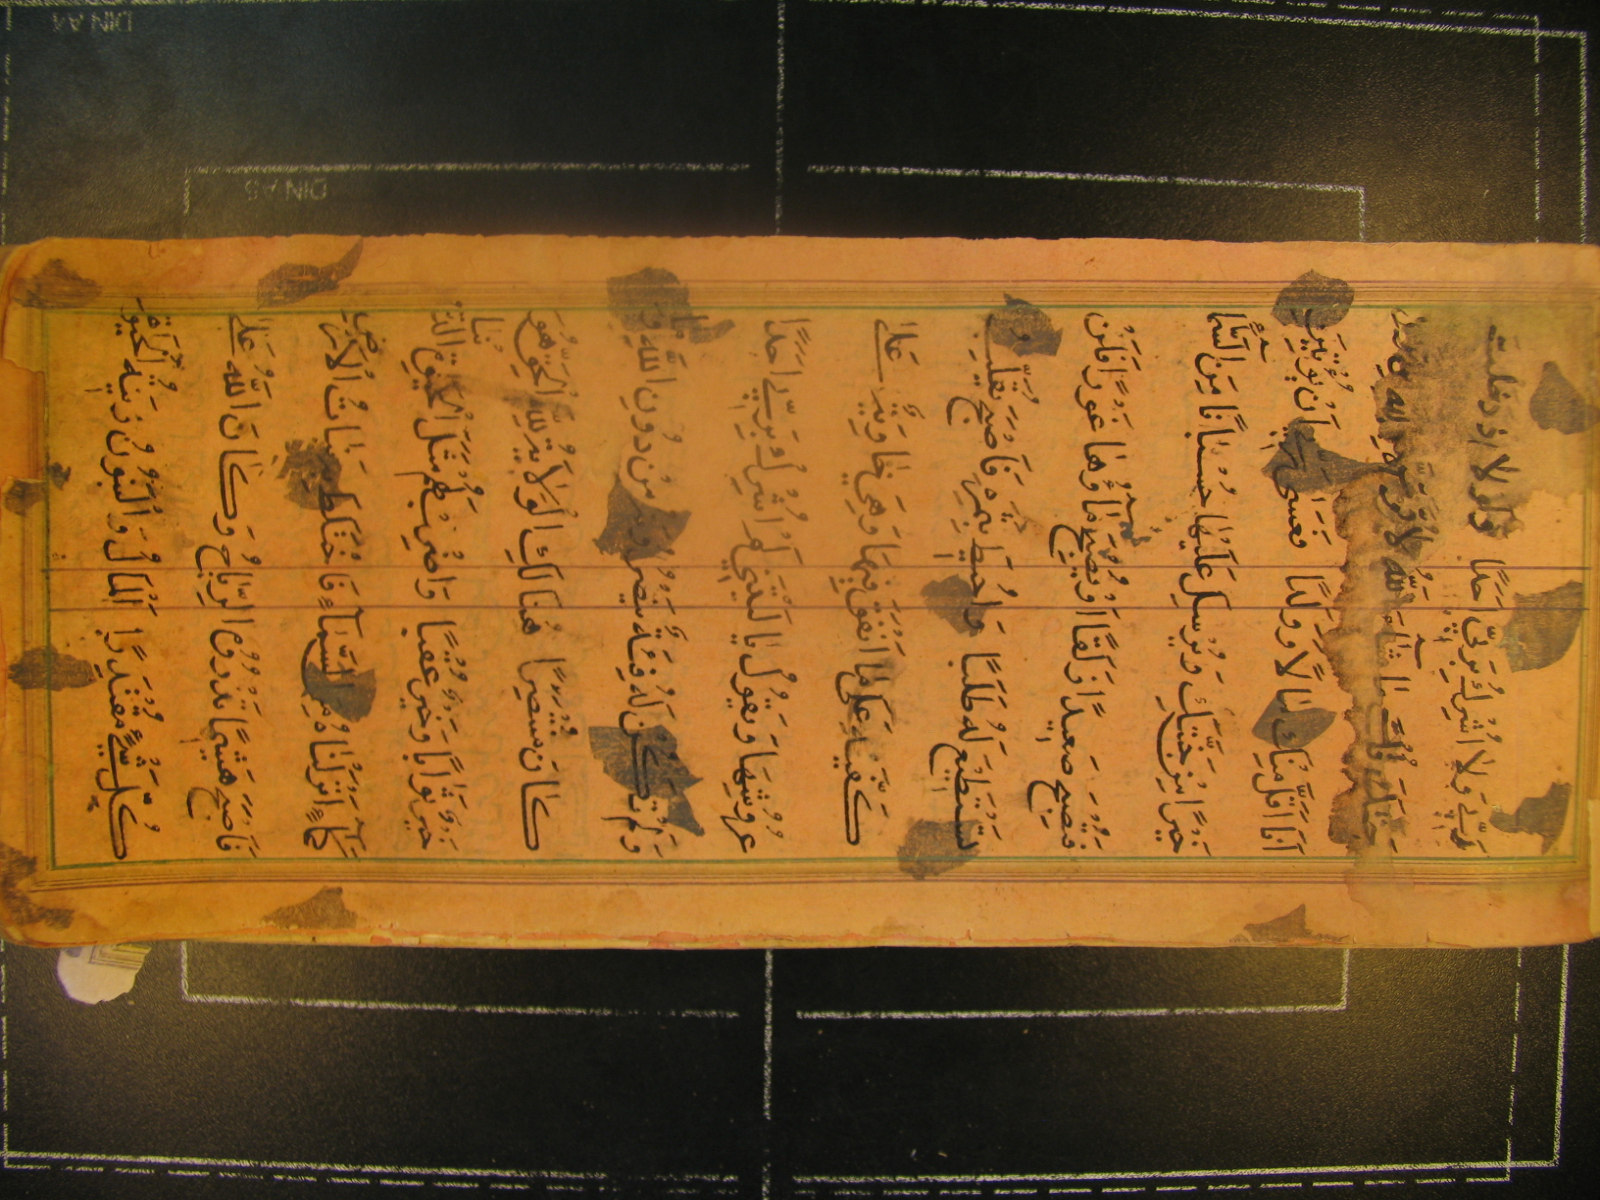 رَبِّي وَلَا أُشْرِكُ بِرَبِّي أَحَدًا وَلَوْلَا إِذْ دَخَلْتَ
جَنَّتَكَ قُلْتَ مَا شَآءَ اللّٰهُ لَا قُوَّةَ إِلَّا بِاللّٰهِ
أَنَا أَقَلَّ مِنْكَ مَالًا وَوَلَدًا فَعَسٰى رَبِّي أَنْ يُؤْتِيَنِ
خَيْرًا مِنْ جَنَّتِكَ وَيُرْسِلَ عَلَيْهَا حُسْبَانًا مِنَ السَّمَآءِ
فَتُصْبِحَ صَعِيدًا زَلَقًا أَوْ يُصْبِحَ مَآؤُهَا غَوْرًا فَلَنْ
تَسْتَطِيعَ لَهُ طَلَبًا وَأُحِيطَ بِثَمَرِهِ فَأَصْبَحَ يُقَلِّبُ
كَفَّيْهِ عَلٰى مَا أَنْفَقَ فِيهَا وَهِيَ خَاوِيَةٌ عَلٰى
عُرُوشِهَا وَيَقُولُ يَا لَيْتَنِي لَمْ أُشْرِكْ بِرَبِّي أَحَدًا
وَلَمْ تَكُنْ لَهُ فِئَةٌ يَنْصُرُونَهُ مِنْ دُونِ اللّٰهِ وَمَا
كَانَ مُنْتَصِرًا هُنَالِكَ الْوَلَايَةُ لِلّٰهِ الْحَقِّ هُوَ
خَيْرٌ ثَوَابًا وَخَيْرٌ عُقْبًا وَاضْرِبْ لَهُمْ مَثَلَ الْحَيٰوةِ الدُّنْيَا
كَمَآءٍ أَنْزَلْنَاهُ مِنَ السَّمَآءِ فَاخْتَلَطَ بِهِ نَبَاتُ الْأَرْضِ
فَأَصْبَحَ هَشِيمًا تَذْرُوهُ الرِّيَاحُ وَكَانَ اللّٰهُ عَلٰى
كُلِّ شَيْءٍ مُقْتَدِرًا الْمَالُ وَالْبَنُونَ زِينَةُ الْحَيٰوةِ
DIN A4
DIN A5